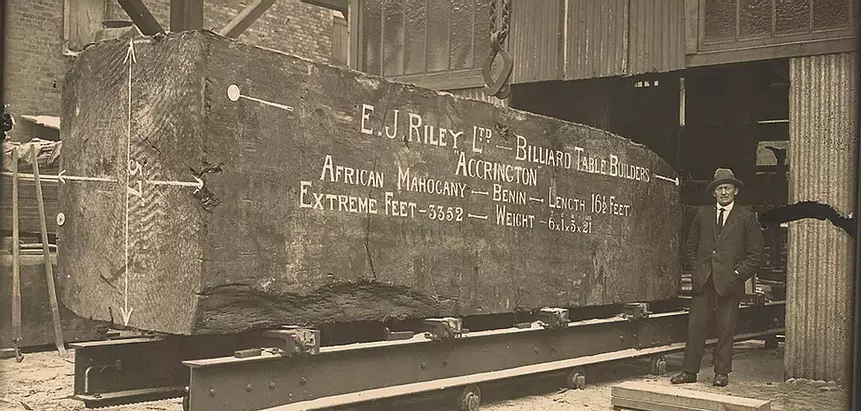 E. J. RILEY LTD — BILLIARD TABLE BUILDERS
"ACCRINGTON"
AFRICAN MAHOGANY — BENIN — LENGTH 16½ FEET
EXTREME FEET - 3352 — WEIGHT - 6 x 1 x 3 x 21
57